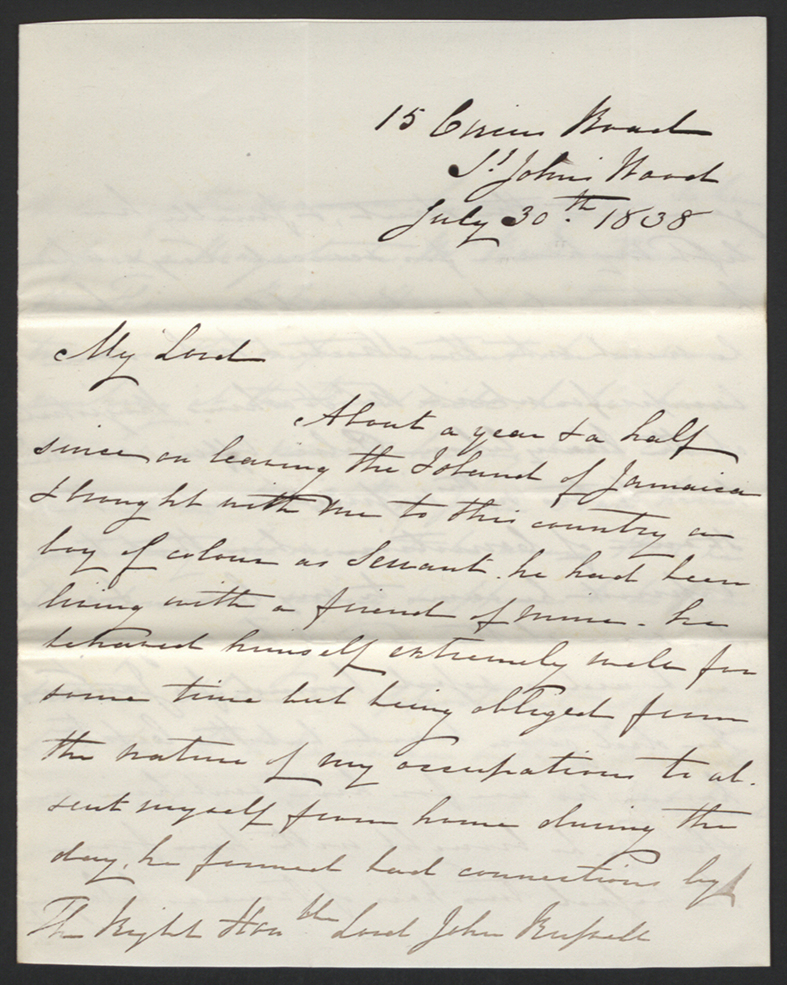 15 Circus Road
St Johns Wood
July 30th 1838
My Lord
About a year & a half
since on leaving the Island of Jamaica
I brought with me to this country a
boy of colour as Servant. he had been
living with a friend of mine - he
behaved himself extremely well for
some time but being obliged from
the nature of my occupations to ab-
sent myself from home during the
day, he formed bad connections by
The Right Honble Lord John Russell